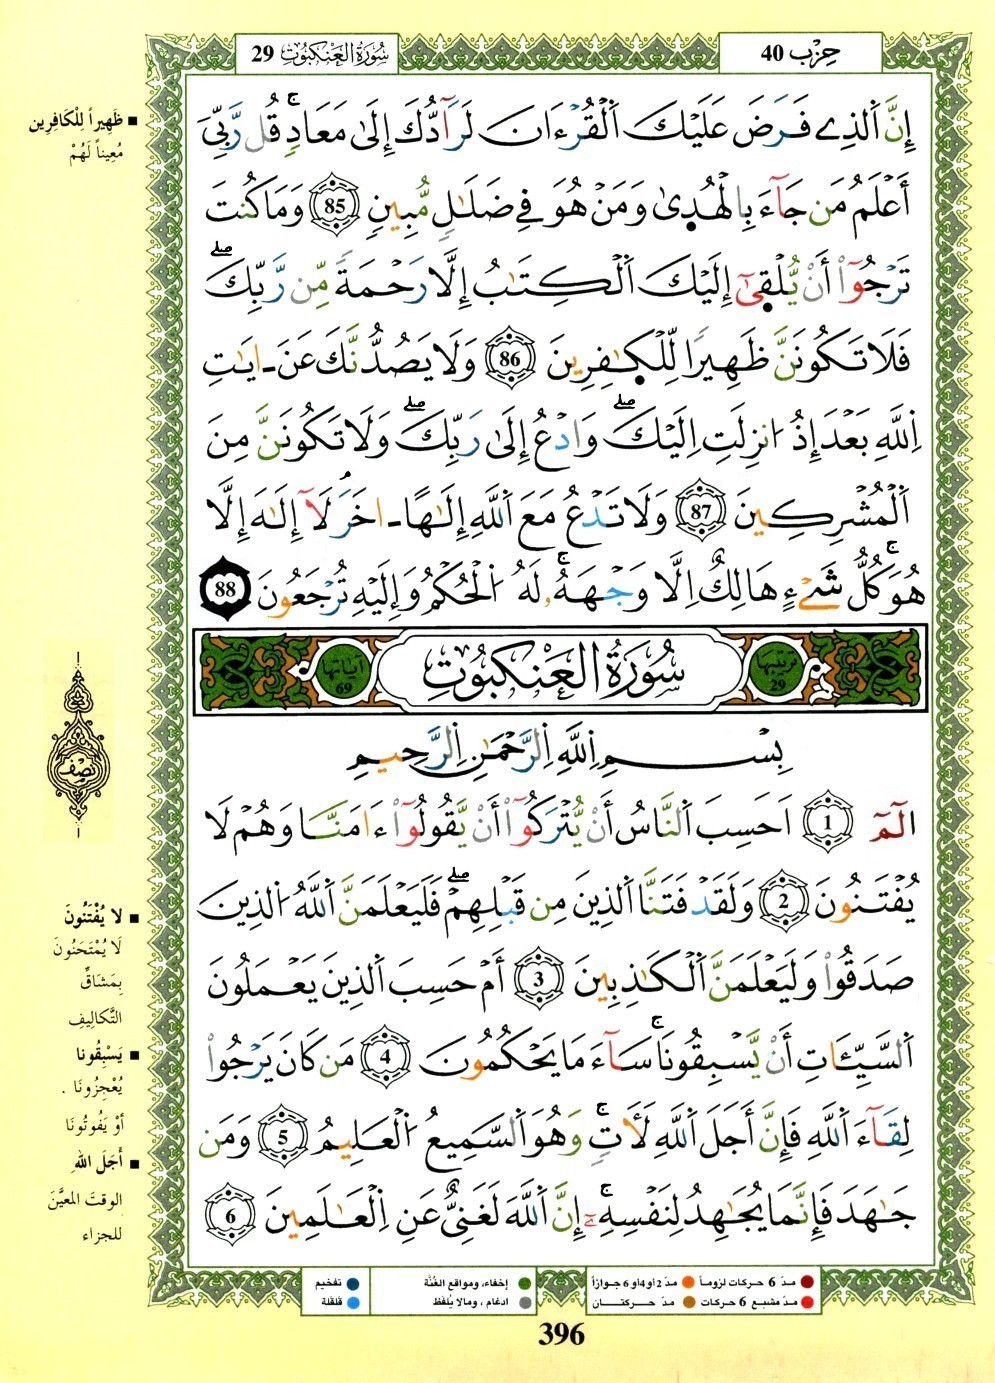 سُورَةُ العَنكبُوت 29
حِزب 40
إِنَّ اَ۬لذِے فَرَضَ عَلَيْكَ اَ۬لْقُرْءَانَ لَرَآدُّكَ إِلَىٰ مَعَادٖۖ قُل رَّبِّيَ
أَعْلَمُ مَن جَآءَ بِالْهُدۭىٰ وَمَنْ هُوَ فِے ضَلَٰلٖ مُّبِينٖ 85 وَمَا كُنتَ
تَرْجُوٓاْ أَنْ يُّلْق۪ىٰٓ إِلَيْكَ اَ۬لْكِتَٰبُ إِلَّا رَحْمَةٗ مِّن رَّبِّكَۖ
فَلَا تَكُونَنَّ ظَهِيراٗ لِّلْكٰ۪فِرِينَ 86 وَلَا يَصُدُّنَّكَ عَنَ ـ ايَٰتِ
اِ۬للَّهِ بَعْدَ إِذُ ا۟نزِلَتِ اِلَيْكَۖ وَادْعُ إِلَىٰ رَبِّكَۖ وَلَا تَكُونَنَّ مِنَ
اَ۬لْمُشْرِكِينَ 87 وَلَا تَدْعُ مَعَ اَ۬للَّهِ إِلَٰهاً ـ اخَرَۘ لَآ إِلَٰهَ إِلَّا
هُوَۚ كُلُّ شَےْءٍ هَالِكٌ اِلَّا وَجْهَهُۥۚ لَهُ اُ۬لْحُكْمُ وَإِلَيْهِ تُرْجَعُونَ 88
ترتيبها 29
سُورَةُ العَنكبُوت
آياتها 69
بِسْمِ اِ۬للَّهِ اِ۬لرَّحْمَٰنِ اِ۬لرَّحِيمِ
أَلَٓمِّٓ 1 اَحَسِبَ اَ۬لنَّاسُ أَنْ يُّتْرَكُوٓاْ أَنْ يَّقُولُوٓاْ ءَامَنَّا وَهُمْ لَا
يُفْتَنُونَ 2 وَلَقَدْ فَتَنَّا اَ۬لذِينَ مِن قَبْلِهِمْۖ فَلَيَعْلَمَنَّ اَ۬للَّهُ اُ۬لذِينَ
صَدَقُواْ وَلَيَعْلَمَنَّ اَ۬لْكَٰذِبِينَ 3 أَمْ حَسِبَ اَ۬لذِينَ يَعْمَلُونَ
اَ۬لسَّيِّـَٔاتِ أَنْ يَّسْبِقُونَاۚ سَآءَ مَا يَحْكُمُونَ 4 مَن كَانَ يَرْجُواْ
لِقَآءَ اَ۬للَّهِ فَإِنَّ أَجَلَ اَ۬للَّهِ لَأٓتٖۚ وَهُوَ اَ۬لسَّمِيعُ اُ۬لْعَلِيمُ 5 وَمَن
جَٰهَدَ فَإِنَّمَا يُجَٰهِدُ لِنَفْسِهِۦٓۚ إِنَّ اَ۬للَّهَ لَغَنِيٌّ عَنِ اِ۬لْعَٰلَمِينَ 6
ظَهِيراً لِلْكَافِرِين
مُعِيناً لَهُمْ
نصف
لا يُفْتَنُونَ
لَا يُمْتَحَنُونَ
بِمَشَاقٌ
التَّكالِيفِ
يَسْبِقُونا
يُعْجِزُونَا .
أوْ يَفُوتُونَا
أَجَلَ اللهِ
الوقتَ المعَيَّنَ
للجزاء
مدّ 6 حركات لزوماً
مدّ 2 أو 4 أو 6 جوازاً
إخفاء، ومواقع الغُنَّة
تفخيم
مدّ مشبع 6 حركات
مدّ حركتان
ادغام، ومالا يُلفظ
قلقلة
396